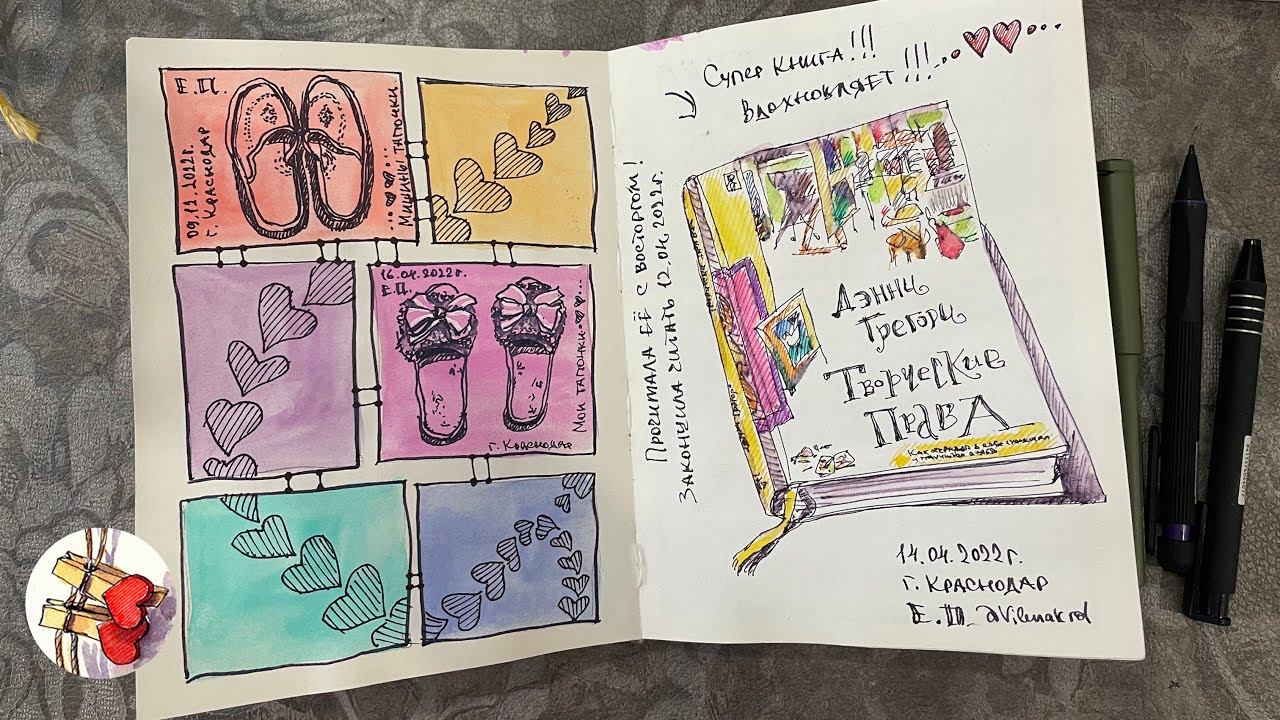 Е.П.
09.12.2022г.
г. Краснодар
Мишины тапочки.
16.04.2022г.
Е.П.
Мои тапочки.
г. Краснодар
Супер книга!!!
Вдохновляет!!!
Прочитала её с восторгом!
Закончила читать 12.04.2022г.
Дэнни
Грегори
Творческие
права
14.04.2022г.
г. Краснодар
Е.П. @Vilenakrd